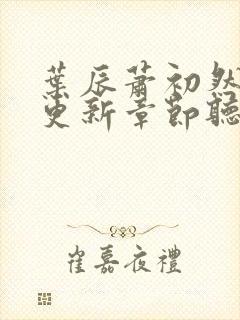 葉辰蕭初然
更新章節聽
崔嘉夜禮